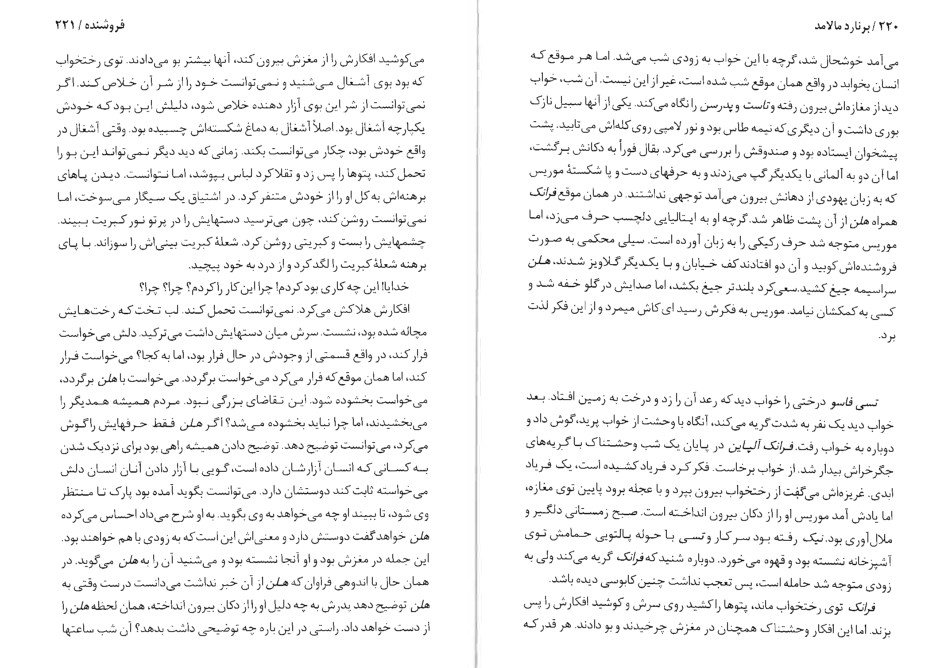 ۲۲۰ / برنارد مالامد
می‌آمد خوشحال شد، گرچه با این خواب به زودی شب می‌شد. اما هر موقع که
انسان بخوابد در واقع همان موقع شب شده است، غیر از این نیست. آن شب، خواب
دید از مغازه‌اش بیرون رفته و تاست و پدرسن را نگاه می‌کند. یکی از آنها سبیل نازک
بوری داشت و آن دیگری که نیمه طاس بود و نور لامپی روی کله‌اش می‌تابید. پشت
پیشخوان ایستاده بود و صندوقش را بررسی می‌کرد. بقال فوراً به دکانش برگشت،
اما آن دو به آلمانی با یکدیگر گپ می‌زدند و به حرفهای دست و پا شکستهٔ موریس
که به زبان یهودی از دهانش بیرون می‌آمد توجهی نداشتند. در همان موقع فرانک
همراه هلن از آن پشت ظاهر شد. گرچه او به ایتالیایی دلچسب حرف می‌زد، اما
موریس متوجه شد حرف رکیکی را به زبان آورده است. سیلی محکمی به صورت
فروشنده‌اش کوبید و آن دو افتادند کف خیابان و با یکدیگر گلاویز شدند، هلن
سراسیمه جیغ کشید. سعی‌کرد بلندتر جیغ بکشد، اما صدایش در گلو خفه شد و
کسی به کمکشان نیامد. موریس به فکرش رسید ای کاش میمرد و از این فکر لذت
برد.
تسی فاسو درختی را خواب دید که رعد آن را زد و درخت به زمین افتاد. بعد
خواب دید یک نفر به شدت گریه می‌کند، آنگاه با وحشت از خواب پرید، گوش داد و
دوباره به خواب رفت. فرانک آلپاین در پایان یک شب وحشتناک با گریه‌های
جگرخراش بیدار شد. از خواب برخاست. فکر کرد فریاد کشیده است، یک فریاد
ابدی. غریزه‌اش می‌گفت از رختخواب بیرون بپرد و با عجله برود پایین توی مغازه،
اما یادش آمد موریس او را از دکان بیرون انداخته است. صبح زمستانی دلگیر و
ملال‌آوری بود. نیک رفته بود سر کار و تسی با حوله پالتویی حمامش توی
آشپزخانه نشسته بود و قهوه می‌خورد. دوباره شنید که فرانک گریه می‌کند ولی به
زودی متوجه شد حامله است، پس تعجب نداشت چنین کابوسی دیده باشد.
فرانک توی رختخواب ماند، پتوها را کشید روی سرش و کوشید افکارش را پس
بزند. اما این افکار وحشتناک همچنان در مغزش چرخیدند و بو دادند. هر قدر که
فروشنده / ۲۲۱
می‌کوشید افکارش را از مغزش بیرون کند، آنها بیشتر بو می‌دادند. توی رختخواب
که بود بوی آشغال می‌شنید و نمی‌توانست خود را از شر آن خلاص کند. اگر
نمی‌توانست از شر این بوی آزار دهنده خلاص شود، دلیلش این بود که خودش
یکپارچه آشغال بود. اصلاً آشغال به دماغ شکسته‌اش چسبیده بود. وقتی آشغال در
واقع خودش بود، چکار می‌توانست بکند. زمانی که دید دیگر نمی‌تواند این بو را
تحمل کند، پتوها را پس زد و تقلا کرد لباس بپوشد، اما نتوانست. دیدن پاهای
برهنه‌اش به کل او را از خودش متنفر کرد. در اشتیاق یک سیگار می‌سوخت، اما
نمی‌توانست روشن کند، چون می‌ترسید دستهایش را در پرتو نور کبریت ببیند.
چشمهایش را بست و کبریتی روشن کرد. شعلهٔ کبریت بینی‌اش را سوزاند. با پای
برهنه شعلهٔ کبریت را لگد کرد و از درد به خود پیچید.
خدایا! این چه کاری بود کردم! چرا این کار را کردم؟ چرا؟ چرا؟
افکارش هلاکش می‌کرد. نمی‌توانست تحمل کند. لب تخت که رخت‌هایش
مچاله شده بود، نشست. سرش میان دستهایش داشت می‌ترکید. دلش می‌خواست
فرار کند، در واقع قسمتی از وجودش در حال فرار بود، اما به کجا؟ می‌خواست فرار
کند، اما همان موقع که فرار می‌کرد می‌خواست برگردد. می‌خواست با هلن برگردد،
می‌خواست بخشوده شود. این تقاضای بزرگی نبود. مردم همیشه همدیگر را
می‌بخشیدند، اما چرا نباید بخشوده می‌شد؟ اگر هلن فقط حرفهایش را گوش
می‌کرد، می‌توانست توضیح دهد. توضیح دادن همیشه راهی بود برای نزدیک شدن
به کسانی که انسان آزارشان داده است، گویی با آزار دادن آنان انسان دلش
می‌خواسته ثابت کند دوستشان دارد. می‌توانست بگوید آمده بود پارک تا منتظر
وی شود، تا ببیند او چه می‌خواهد به وی بگوید. به او شرح می‌داد احساس می‌کرده
هلن خواهد گفت دوستش دارد و معنی‌اش این است که به زودی با هم خواهند بود.
این جمله در مغزش بود و او آنجا نشسته بود و می‌شنید آن را به هلن می‌گوید. در
همان حال با اندوهی فراوان که هلن از آن خبر نداشت می‌دانست درست وقتی به
هلن توضیح دهد پدرش به چه دلیل او را از دکان بیرون انداخته، همان لحظه هلن را
از دست خواهد داد. راستی در این باره چه توضیحی داشت بدهد؟ آن شب ساعتها